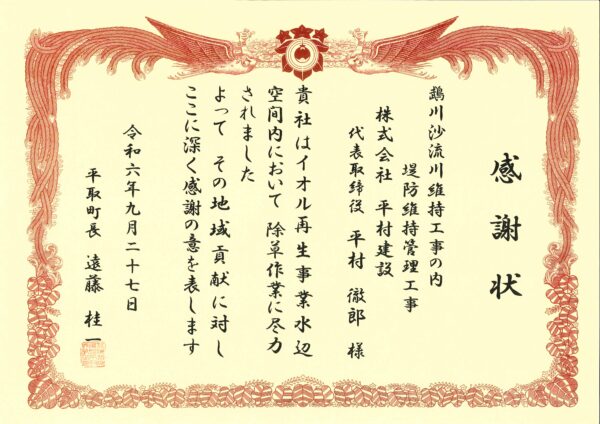 感謝状
鵡川沙流川維持工事の内
堤防維持管理工事
株式会社 平村建設
代表取締役 平村 徹郎 様
貴社はイオル再生事業水辺
空間内において 除草作業に尽力
されました
よって その地域貢献に対し
ここに深く感謝の意を表します
令和六年九月二十七日
平取町長 遠藤 桂一